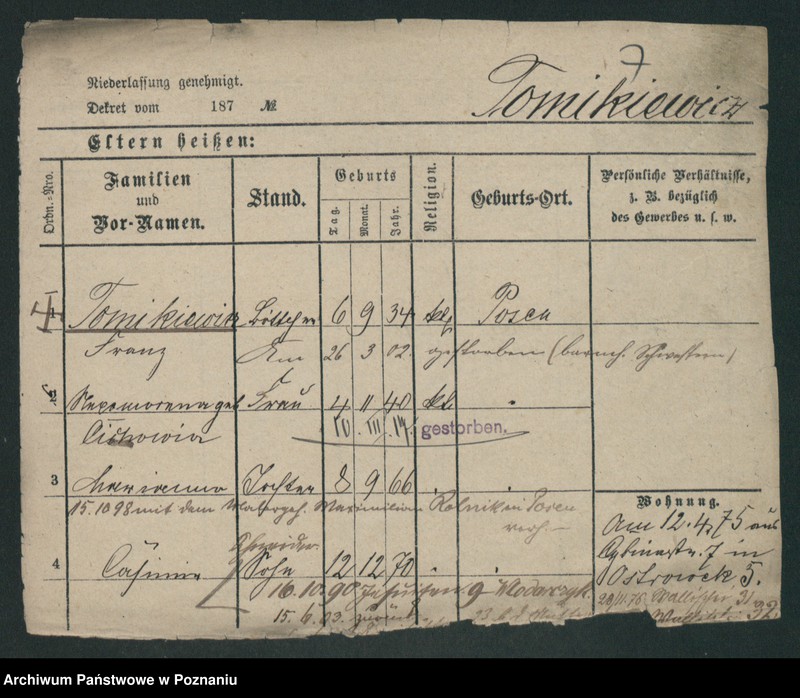 7
Niederlassung genehmigt.
Dekret vom 187 №
Tomikiewicz
Eltern heißen:
Ordn.-Nro.
Familien
und
Vor-Namen.
Stand.
Geburts
Tag.
Monat.
Jahr.
Religion.
Geburts-Ort.
Persönliche Verhältnisse,
z. B. bezüglich
des Gewerbes u. s. w.
1 Tomikiewicz Böttcher 6 9 34 kt. Posen
Franz Am 26 3 02. gestorben (barmh. Schwestern)
2 Nepomocena geb Frau 4 11 40 kt. "
10. III. 17. gestorben.
3 Marianna Tochter 8 9 66 " "
15.10 98 mit dem Maximilian Rolnik in Posen
Wohnung.
Am 12.4.75 aus
7 in
Ostrowek 5.
Schneider
4 Casimir Sohn 12 12 70 " "
16.10.90 Jesuiten 9 Wlodarczyk.
29/11.76 Wallischei 31
15. 6. 03. zurück
32
Archiwum Państwowe w Poznaniu